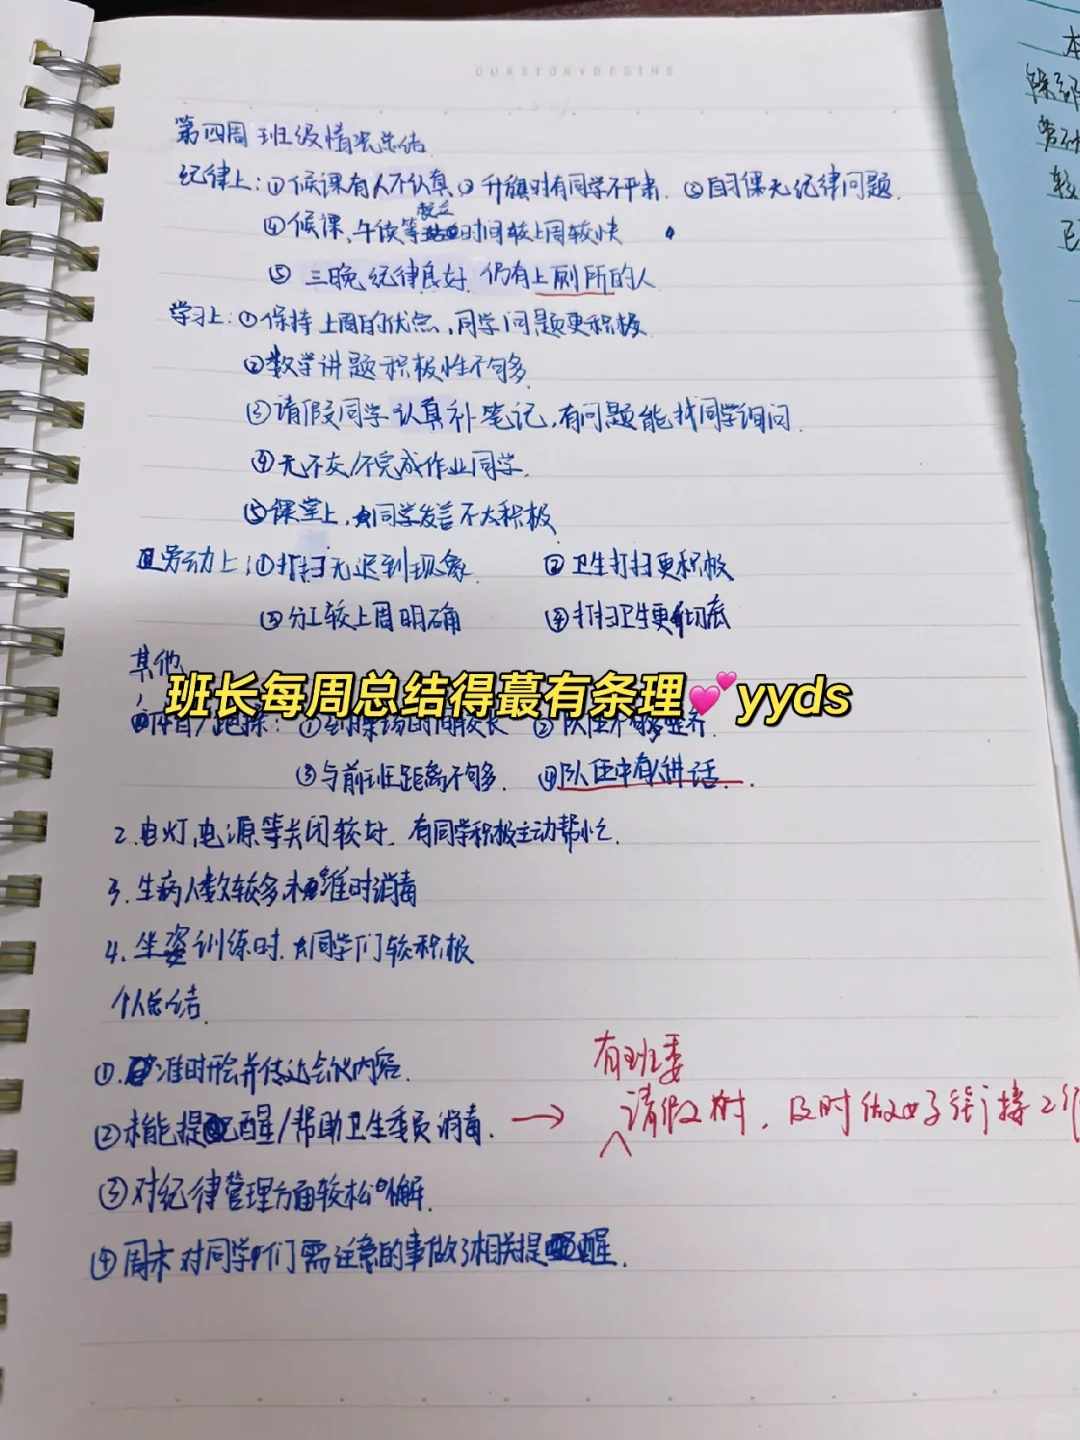 OURSTORYBEGINS
第四周 班级情况总结
纪律上:①候课有人不认真 ②升旗时有同学不严肃. ③自习课无纪律问题.
④候课、午读等 时间较上周较快
⑤三晚纪律良好 仍有上厕所的人
学习上:①保持上周的优点,同学问题更积极
②数学讲题积极性不够多
③请假同学认真补笔记,有问题能找同学询问.
④无不交/不完成作业同学.
⑤课堂上,同学发言不太积极
劳动上:①打扫无迟到现象 ②卫生打扫更积极
③分工较上周明确 ④打扫卫生更彻底
其他
班长每周总结得蕞有条理💕yyds
跑操:①到操场时间较长 ②队伍不够整齐.
③与前班距离不够多. ④队伍中有人讲话.
2.电灯,电源等关闭较好. 有同学积极主动帮忙.
3.生病人数较多,未准时消毒
4.坐姿训练时.同学们较积极
个人总结.
①.准时开会并传达会议内容.
有班委
②未能提醒/帮助卫生委员消毒. → 请假时,及时做好衔接工作
③对纪律管理方面较松懈.
④周末对同学们需注意的事做了相关提醒.
本